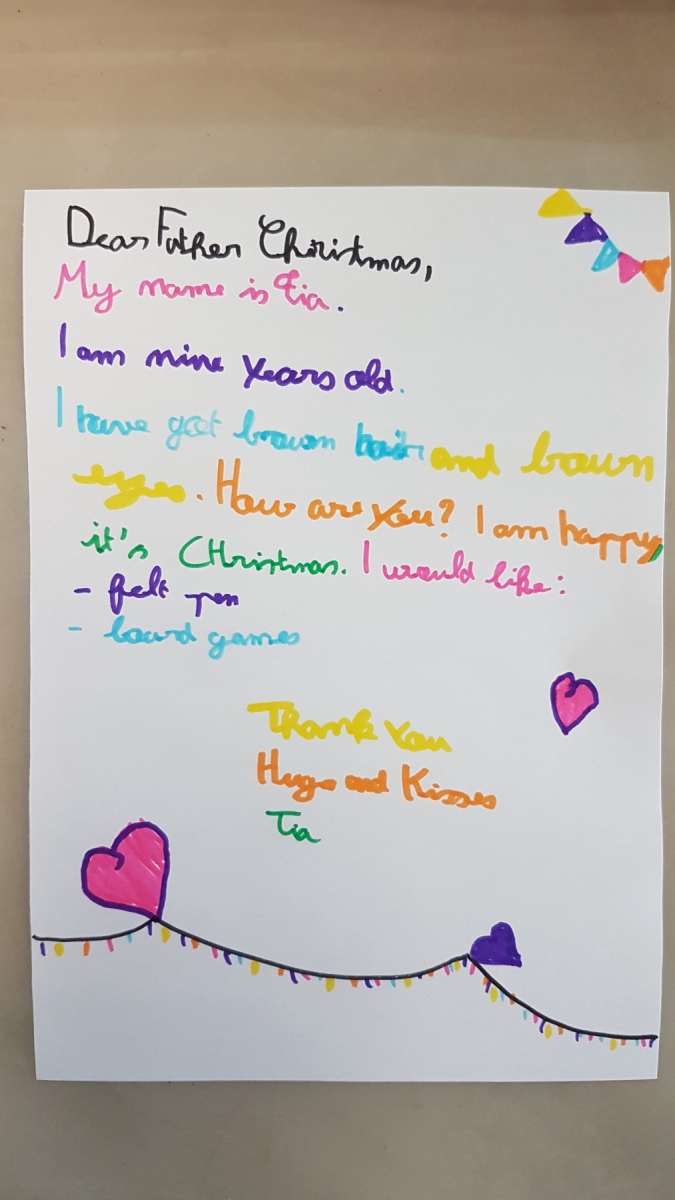 Dear Father Christmas,
My name is Tia.
I am nine years old.
I have got brown hair and brown
eyes. How are you? I am happy,
it's CHristmas. I would like:
- felt pen
- board games
Thank you
Hugs and Kisses
Tia